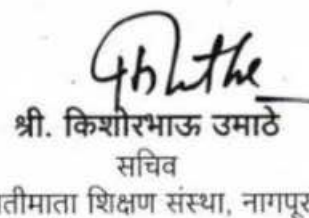 श्री. किशोरभाऊ उमाठे
सचिव
शिक्षण संस्था, नागपूर